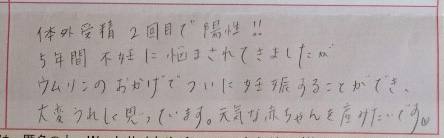 体外受精 2回目で陽性!!
5年間 不妊に悩まされてきましたが
ウムリンのおかげでついに妊娠することができ、
大変うれしく思っています。元気な赤ちゃんを産みたいです。